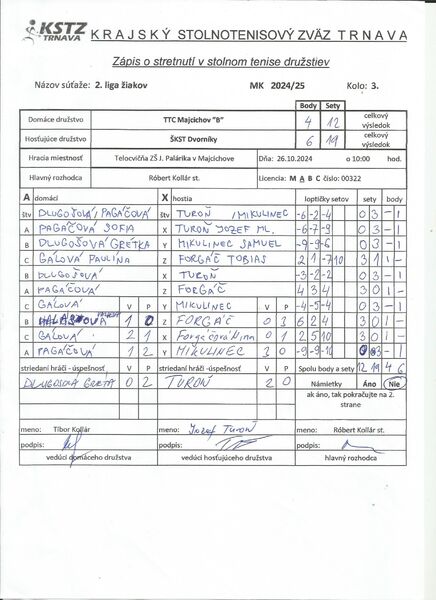 KSTZ TRNAVA KRAJSKÝ STOLNOTENISOVÝ ZVÄZ TRNAVA
Zápis o stretnutí v stolnom tenise družstiev
Názov súťaže: 2. liga žiakov MK 2024/25 Kolo: 3.
Body Sety
Domáce družstvo TTC Majcichov "B" 4 12 celkový výsledok
Hosťujúce družstvo ŠKST Dvorníky 6 19 celkový výsledok
Hracia miestnosť Telocvičňa ZŠ J. Palárika v Majcichove Dňa: 26.10.2024 o 10:00 hod.
Hlavný rozhodca Róbert Kollár st. Licencia: M A B C číslo: 00322
A domáci X hostia loptičky setov sety body
štv DLUGOŠOVÁ/PAGÁČOVÁ štv TUROŇ /MIKULINEC -6 -2 -4 0 3 - 1
A PAGÁČOVÁ SOFIA X TUROŇ JOZEF ML. -6 -7 -9 0 3 - 1
B DLUGOŠOVÁ GRÉTKA Y MIKULINEC SAMUEL -9 -9 -6 0 3 - 1
C GÁLOVÁ PAULINA Z FORGÁČ TOBIAS 2 1 -7 10 3 1 1 -
B DLUGOŠOVÁ X TUROŇ -3 -2 -2 0 3 - 1
A PAGÁČOVÁ Z FORGÁČ 4 3 4 3 0 1 -
C GÁLOVÁ V P Y MIKULINEC V P -4 -5 -4 0 3 - 1
B 1 0 Z FORGÁČ 0 3 6 2 4 3 0 1 -
C GÁLOVÁ 2 1 X Forgáčová Nina 0 1 2 5 10 3 0 1 -
A PAGÁČOVÁ 1 2 Y MIKULINEC 3 0 -9 -9 0 3 - 1
striedaní hráči - úspešnosť V P striedaní hráči - úspešnosť V P Spolu body a sety 12 19 4 6
DLUGOŠOVÁ GRÉTA 0 2 TUROŇ 2 0 Námietky Áno Nie
ak áno, tak pokračujte na 2. strane
meno: Tibor Kollár meno: Jozef Turoň meno: Róbert Kollár st.
podpis: podpis: podpis:
vedúci domáceho družstva vedúci hosťujúceho družstva hlavný rozhodca